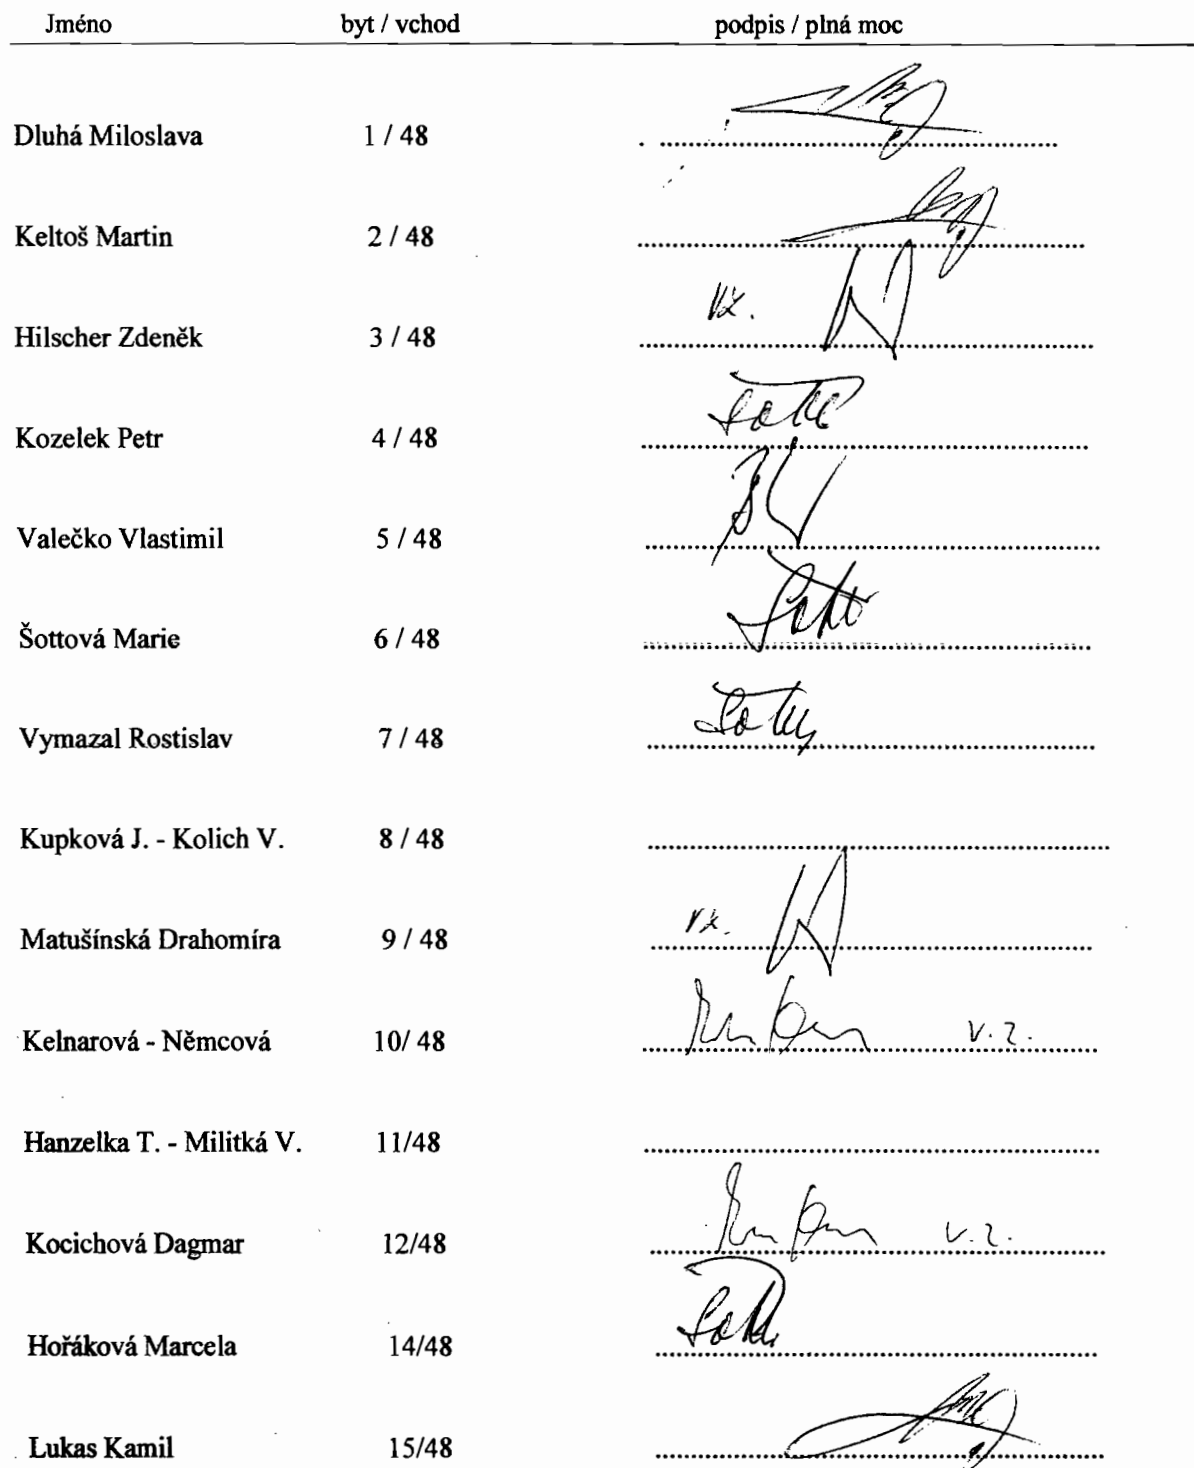 Jméno byt / vchod podpis / plná moc
Dluhá Miloslava 1 / 48
Keltoš Martin 2 / 48
Hilscher Zdeněk 3 / 48
Kozelek Petr 4 / 48
Valečko Vlastimil 5 / 48
Šottová Marie 6 / 48
Vymazal Rostislav 7 / 48
Kupková J. - Kolich V. 8 / 48
Matušínská Drahomíra 9 / 48
Kelnarová - Němcová 10/ 48 v.z.
Hanzelka T. - Militká V. 11/48
Kocichová Dagmar 12/48 v.z.
Hořáková Marcela 14/48
Lukas Kamil 15/48